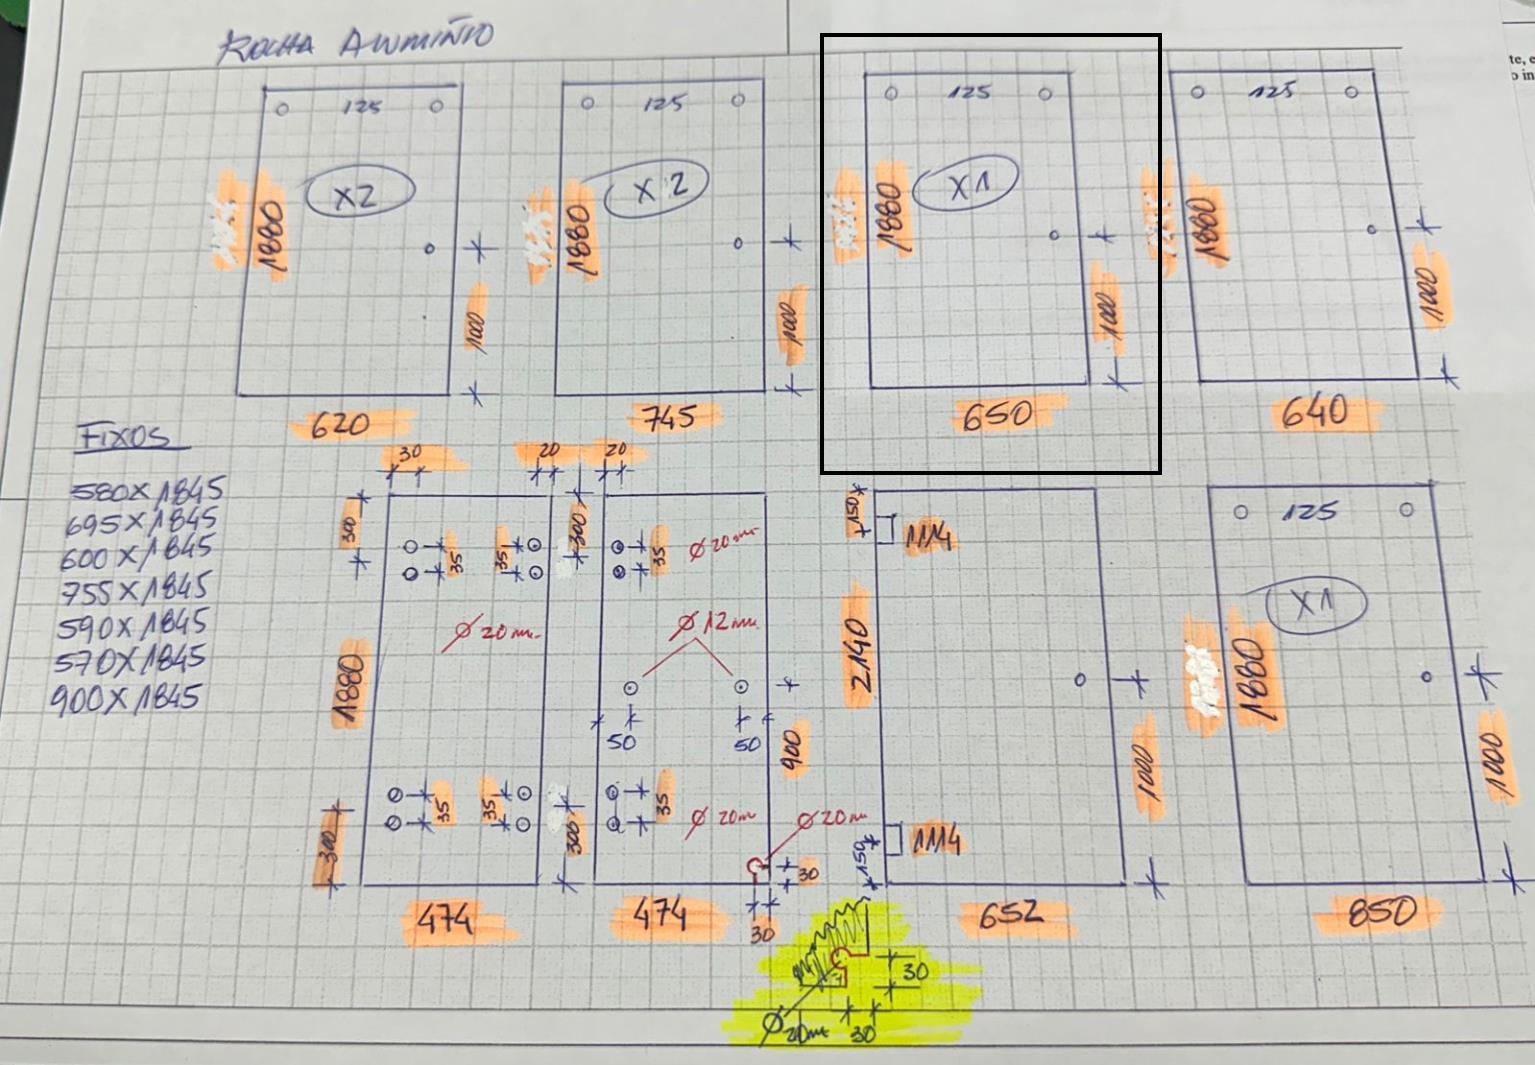 ROCHA ALUMIÑIO
125
125
125
125
X2
X2
X1
1880
1880
1880
1880
1000
1000
1000
1000
620
745
650
640
FIXOS
580X1845
695X1845
600X1845
755X1845
590X1845
570X1845
900X1845
30
20
20
300
35
35
300
35
Ø20mm
150
1114
125
Ø20mm
Ø12mm
X1
1880
2140
1880
50
50
900
1000
1000
300
35
35
300
35
Ø20m
Ø20m
30
150
1114
474
474
30
652
850
30
Ø20mm
30